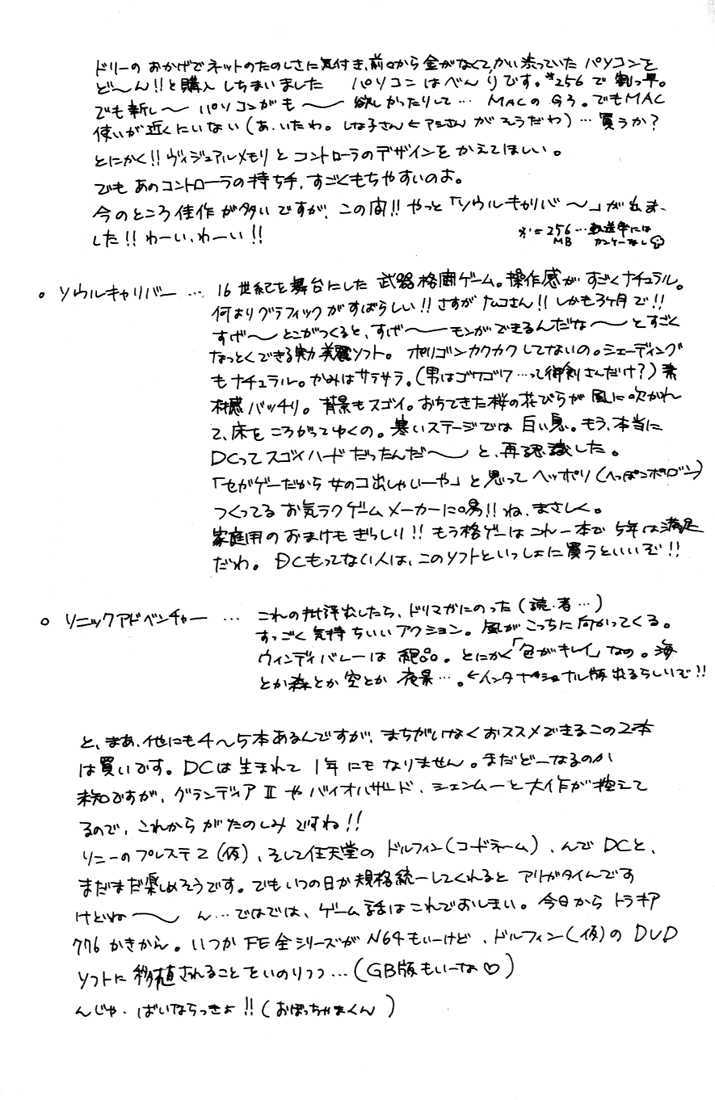 ドリーの おかげでネットのたのしさに気付き、前々から金がなくてかい添っていた パソコンを
ど〜ん!!と購入しちまいました　パソコンはべんりです。※256で 割っ早。
でも新し〜 パソコンがも〜〜 欲しかったりして… MACの G3。でもMAC
使いが近くにいない (あ、いたわ。しな子さん ← アミさん がそうだわ) … 買うか?
とにかく!! ヴィジュアルメモリ と コントローラのデザインを かえてほしい。
でも あのコントローラの持ち手、すごくもちやすいのよ。
今のところ佳作 が多いですが、この間!! やっと「ソウルキャリバ〜」が出ま
した!! わーい、わーい!!
※=256MB … 転送率には カンケーなし
○ ソウルキャリバー … 16世紀を舞台にした 武器格闘ゲーム。操作感が すごくナチュラル。
何よりグラフィックが すばらしい!! さすが ナムコさん!! しかも3ヶ月で!!
すげ〜 とこがつくると、すげ〜〜モンができるんだな〜 とすごく
なっとくできる 美麗ソフト。 ポリゴンカクカクしてないの。シェーディング
もナチュラル。かみはサラサラ。(男はゴワゴワ…って御剣さんだけ?) 素
材感 バッチリ。背景もスゴイ。おちてきた桜の花びらが 風に吹かれ
て、床を ころがってゆくの。寒いステージでは 白い息。もう、本当に
DCってスゴイハード だったんだ〜 と、再認識した。
「セガゲーだから 女のコ出しゃいーや」と思って ヘッポリ (へっぽこポリゴン)
つくってる お気ラクゲームメーカーに喝!! ね、まさしく。
家庭用の おまけもぎっしり!! もう格ゲーは これ一本で 5年は満足
だわ。 DCもってない人は、このソフトといっしょに買うといいぞ!!
○ ソニックアドベンチャー … これの批評出したら、ドリマガにのった (読・者…)
すっごく気持ちいいアクション。風がこっちに向かってくる。
ウィンディバレーは 絶品。とにかく「色がキレイ」なの。海
とか森とか空とか 夜景…。←インタナショナル版出るらしいで!!
と、まあ、他にも4〜5本あるんですが、まちがいなくおススメできるこの2本
は買いです。DCは生まれて 1年にもなりません。まだどーなるのか
未知ですが、グランディアⅡ や バイオハザード、シェンムー と大作が控えて
るので、これから がたのしみ ですね!!
ソニーのプレステ2 (仮)、そして任天堂の ドルフィン(コードネーム)、んで DCと、
まだまだ楽しめそうです。でもいつの日か規格統一してくれると アリガタイんです
けどね〜〜 ん…ではでは、ゲーム話はこれでおしまい。今日から トラキア
776 かきから。いつか FE全シリーズが N64もいーけど、ドルフィン(仮)の DVD
ソフトに 移植されることをいのりつつ… (GB版もいーな♡)
んじゃ、ばいならっきょ!! (おぼっちゃまくん)